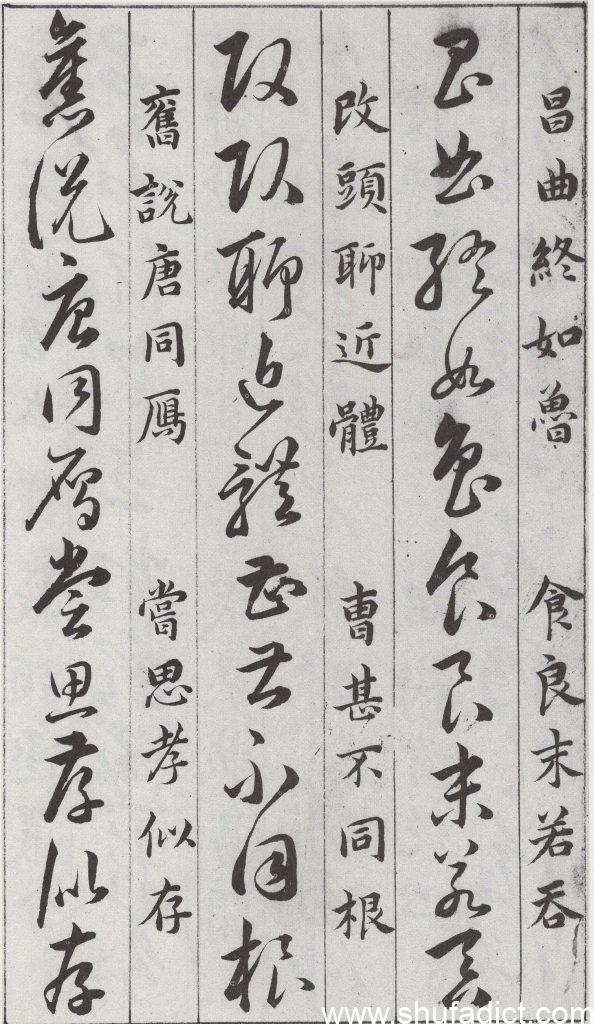 昌曲終如魯 食良末若吞
昌曲終如魯食良末若吞
改頭聊近體 曹甚不同根
改頭聊近體曹甚不同根
舊說唐同鴈 嘗思孝似存
舊說唐同鴈嘗思孝似存
www.shufadict.com